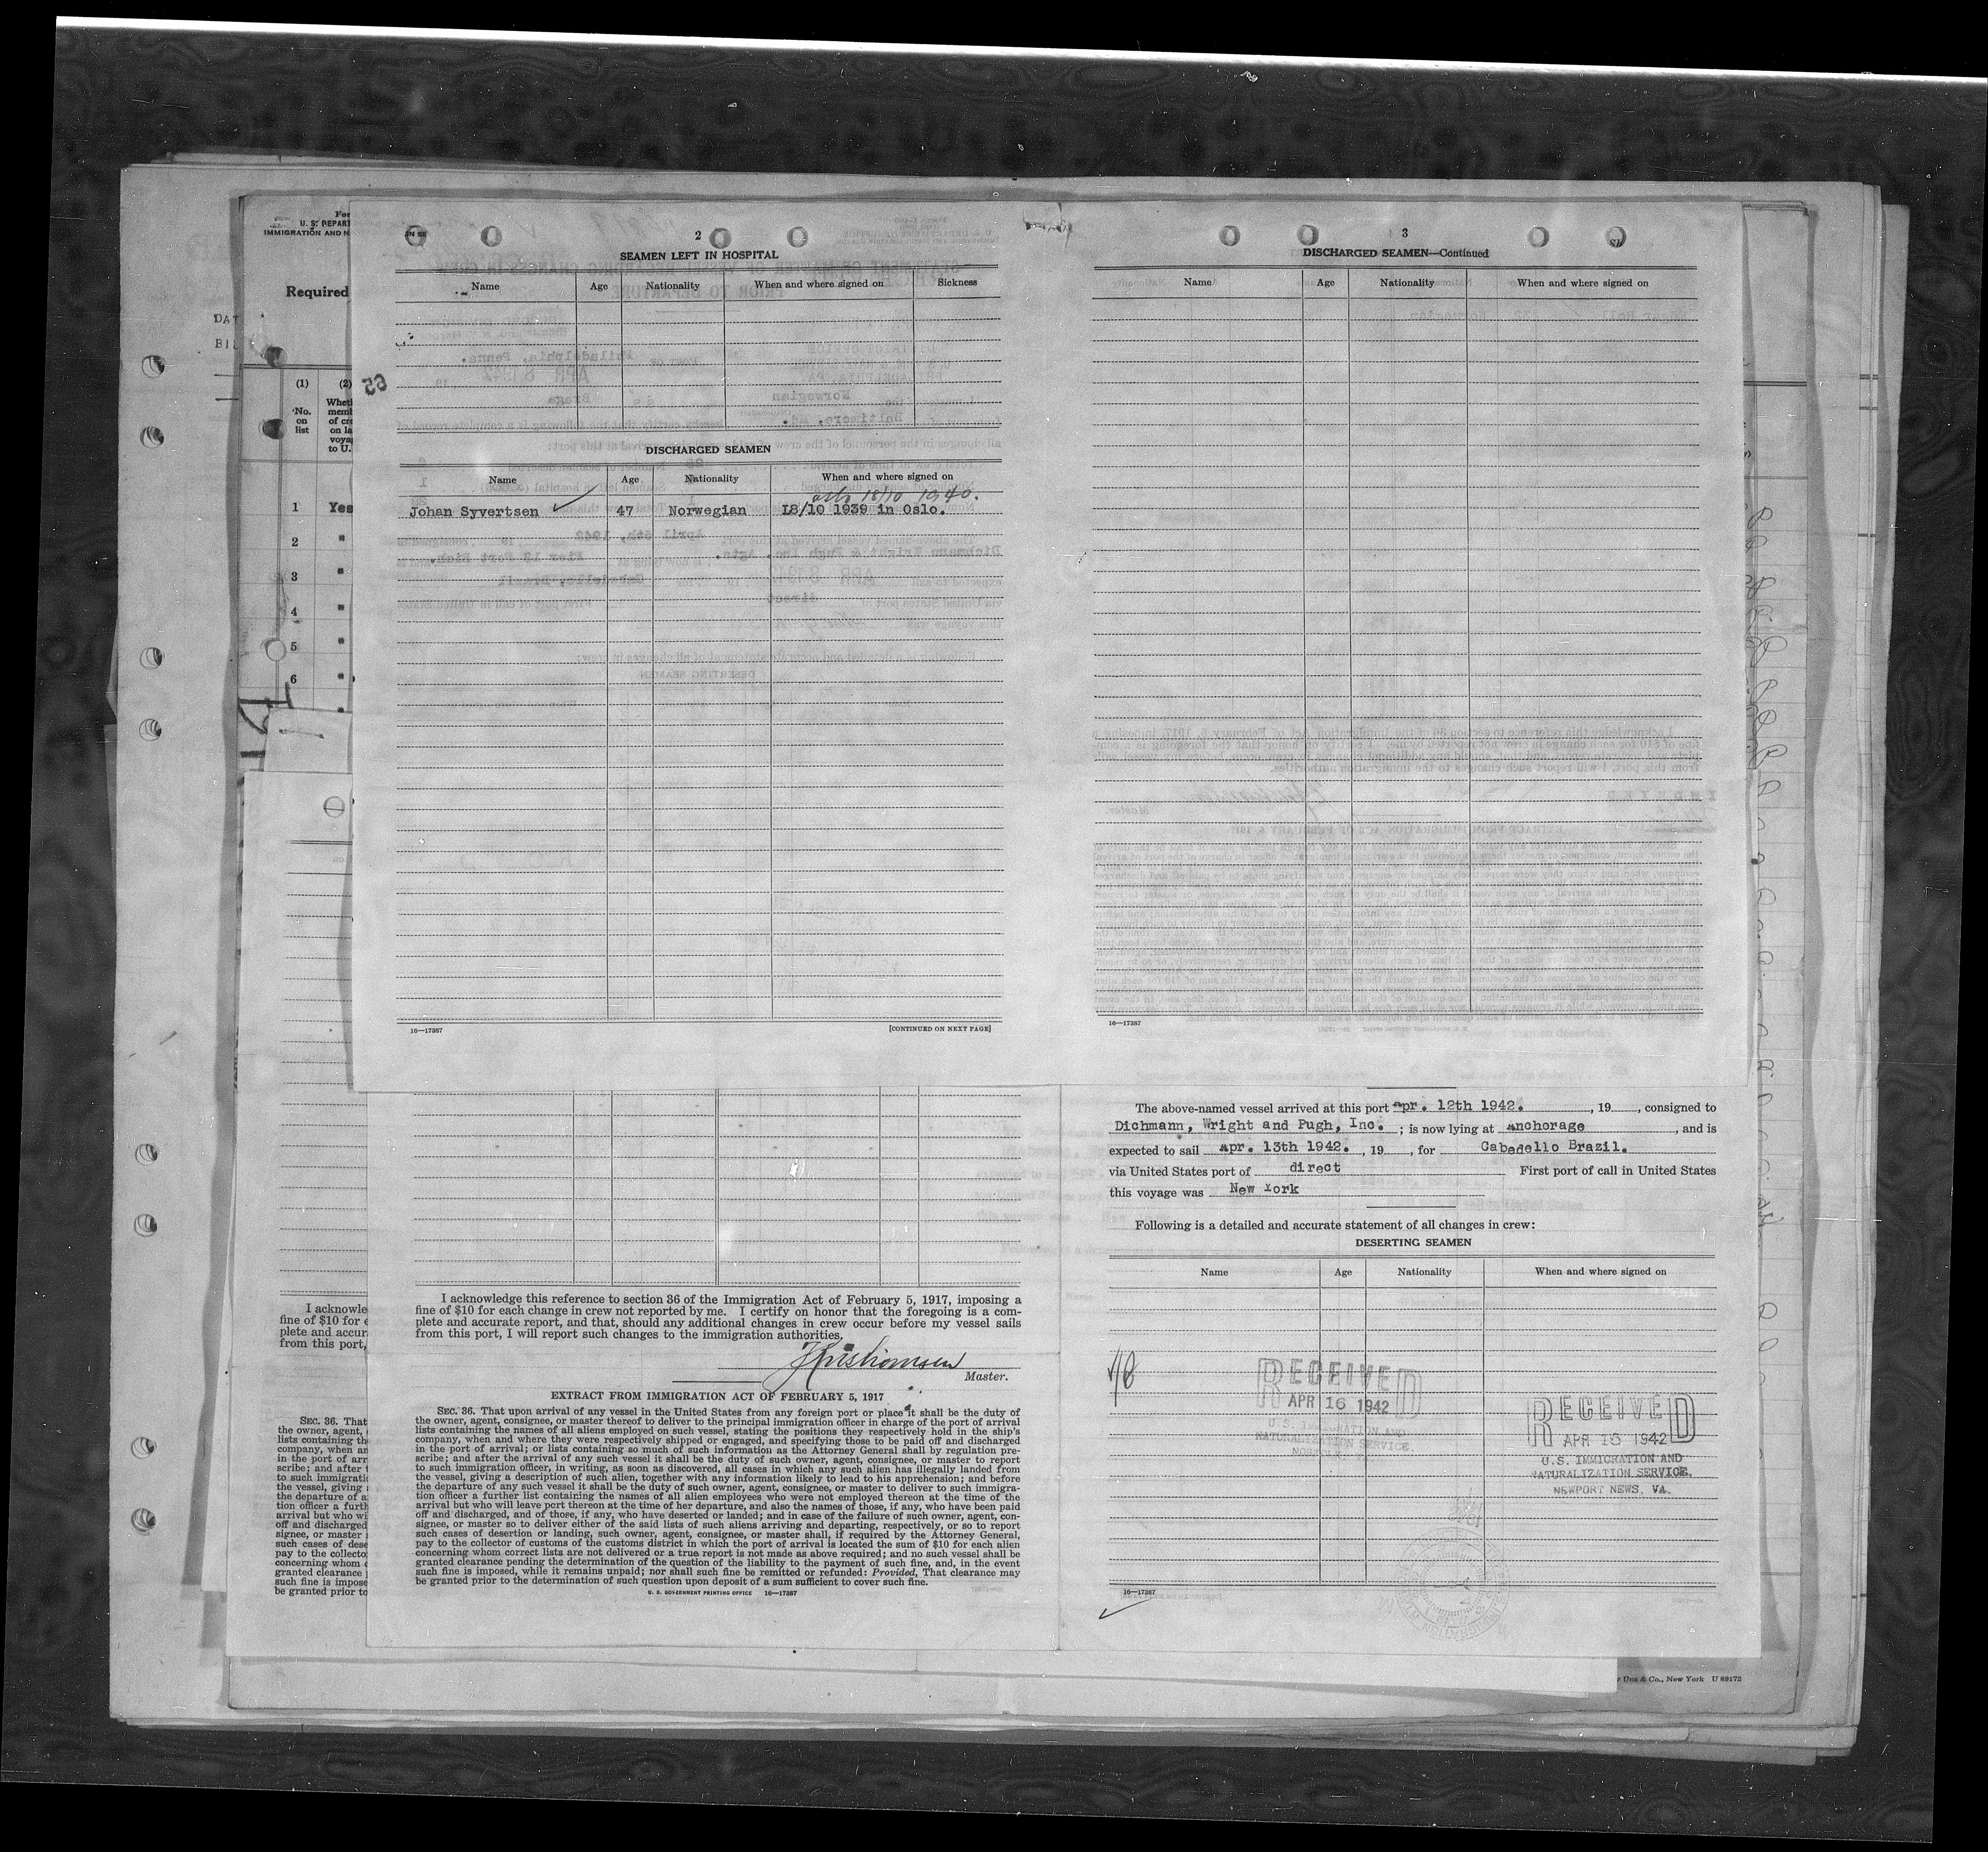 For
U. S. DEPART
IMMIGRATION AND N
Required
DAT
BIL
(1)
(2)
No.
on
list
Whet
memb
of cre
on la
voya
to U.
1 Yes
2 "
3 "
4 "
5 "
6 "
65
2
SEAMEN LEFT IN HOSPITAL
Name Age Nationality When and where signed on Sickness
DISCHARGED SEAMEN
Name Age Nationality When and where signed on
oslo 18/10 1940.
Johan Syvertsen 47 Norwegian 18/10 1939 in Oslo.
16—17387 [CONTINUED ON NEXT PAGE]
3
DISCHARGED SEAMEN—Continued
Name Age Nationality When and where signed on
16—17387
I acknowle
fine of $10 for e
plete and accur
from this port,
SEC. 36. That
the owner, agent,
lists containing th
company, when an
in the port of arr
scribe; and after t
to such immigratio
the vessel, giving
the departure of a
tion officer a furth
arrival but who wi
off and discharged
signee, or master
such cases of dese
pay to the collecto
concerning whom c
granted clearance
such fine is impose
be granted prior to
I acknowledge this reference to section 36 of the Immigration Act of February 5, 1917, imposing a
fine of $10 for each change in crew not reported by me. I certify on honor that the foregoing is a com-
plete and accurate report, and that, should any additional changes in crew occur before my vessel sails
from this port, I will report such changes to the immigration authorities.
Master.
EXTRACT FROM IMMIGRATION ACT OF FEBRUARY 5, 1917
SEC. 36. That upon arrival of any vessel in the United States from any foreign port or place it shall be the duty of
the owner, agent, consignee, or master thereof to deliver to the principal immigration officer in charge of the port of arrival
lists containing the names of all aliens employed on such vessel, stating the positions they respectively hold in the ship's
company, when and where they were respectively shipped or engaged, and specifying those to be paid off and discharged
in the port of arrival; or lists containing so much of such information as the Attorney General shall by regulation pre-
scribe; and after the arrival of any such vessel it shall be the duty of such owner, agent, consignee, or master to report
to such immigration officer, in writing, as soon as discovered, all cases in which any such alien has illegally landed from
the vessel, giving a description of such alien, together with any information likely to lead to his apprehension; and before
the departure of any such vessel it shall be the duty of such owner, agent, consignee, or master to deliver to such immigra-
tion officer a further list containing the names of all alien employees who were not employed thereon at the time of the
arrival but who will leave port thereon at the time of her departure, and also the names of those, if any, who have been paid
off and discharged, and of those, if any, who have deserted or landed; and in case of the failure of such owner, agent, con-
signee, or master so to deliver either of the said lists of such aliens arriving and departing, respectively, or so to report
such cases of desertion or landing, such owner, agent, consignee, or master shall, if required by the Attorney General,
pay to the collector of customs of the customs district in which the port of arrival is located the sum of $10 for each alien
concerning whom correct lists are not delivered or a true report is not made as above required; and no such vessel shall be
granted clearance pending the determination of the question of the liability to the payment of such fine, and, in the event
such fine is imposed, while it remains unpaid; nor shall such fine be remitted or refunded: Provided, That clearance may
be granted prior to the determination of such question upon deposit of a sum sufficient to cover such fine.
U. S. GOVERNMENT PRINTING OFFICE 16—17387
The above-named vessel arrived at this port Apr. 12th 1942. , 19 , consigned to
Dichmann, Wright and Pugh, Inc. ; is now lying at Anchorage , and is
expected to sail Apr. 13th 1942. , 19 , for Cabedello Brazil.
via United States port of direct First port of call in United States
this voyage was New York
Following is a detailed and accurate statement of all changes in crew:
DESERTING SEAMEN
Name Age Nationality When and where signed on
RECEIVED
APR 16 1942
U. S. IMMIGRATION AND
NATURALIZATION SERVICE,
RECEIVED
APR 15 1942
U.S. IMMIGRATION AND
NATURALIZATION SERVICE,
NEWPORT NEWS, VA.
16—17387
& Co., New York U 89172